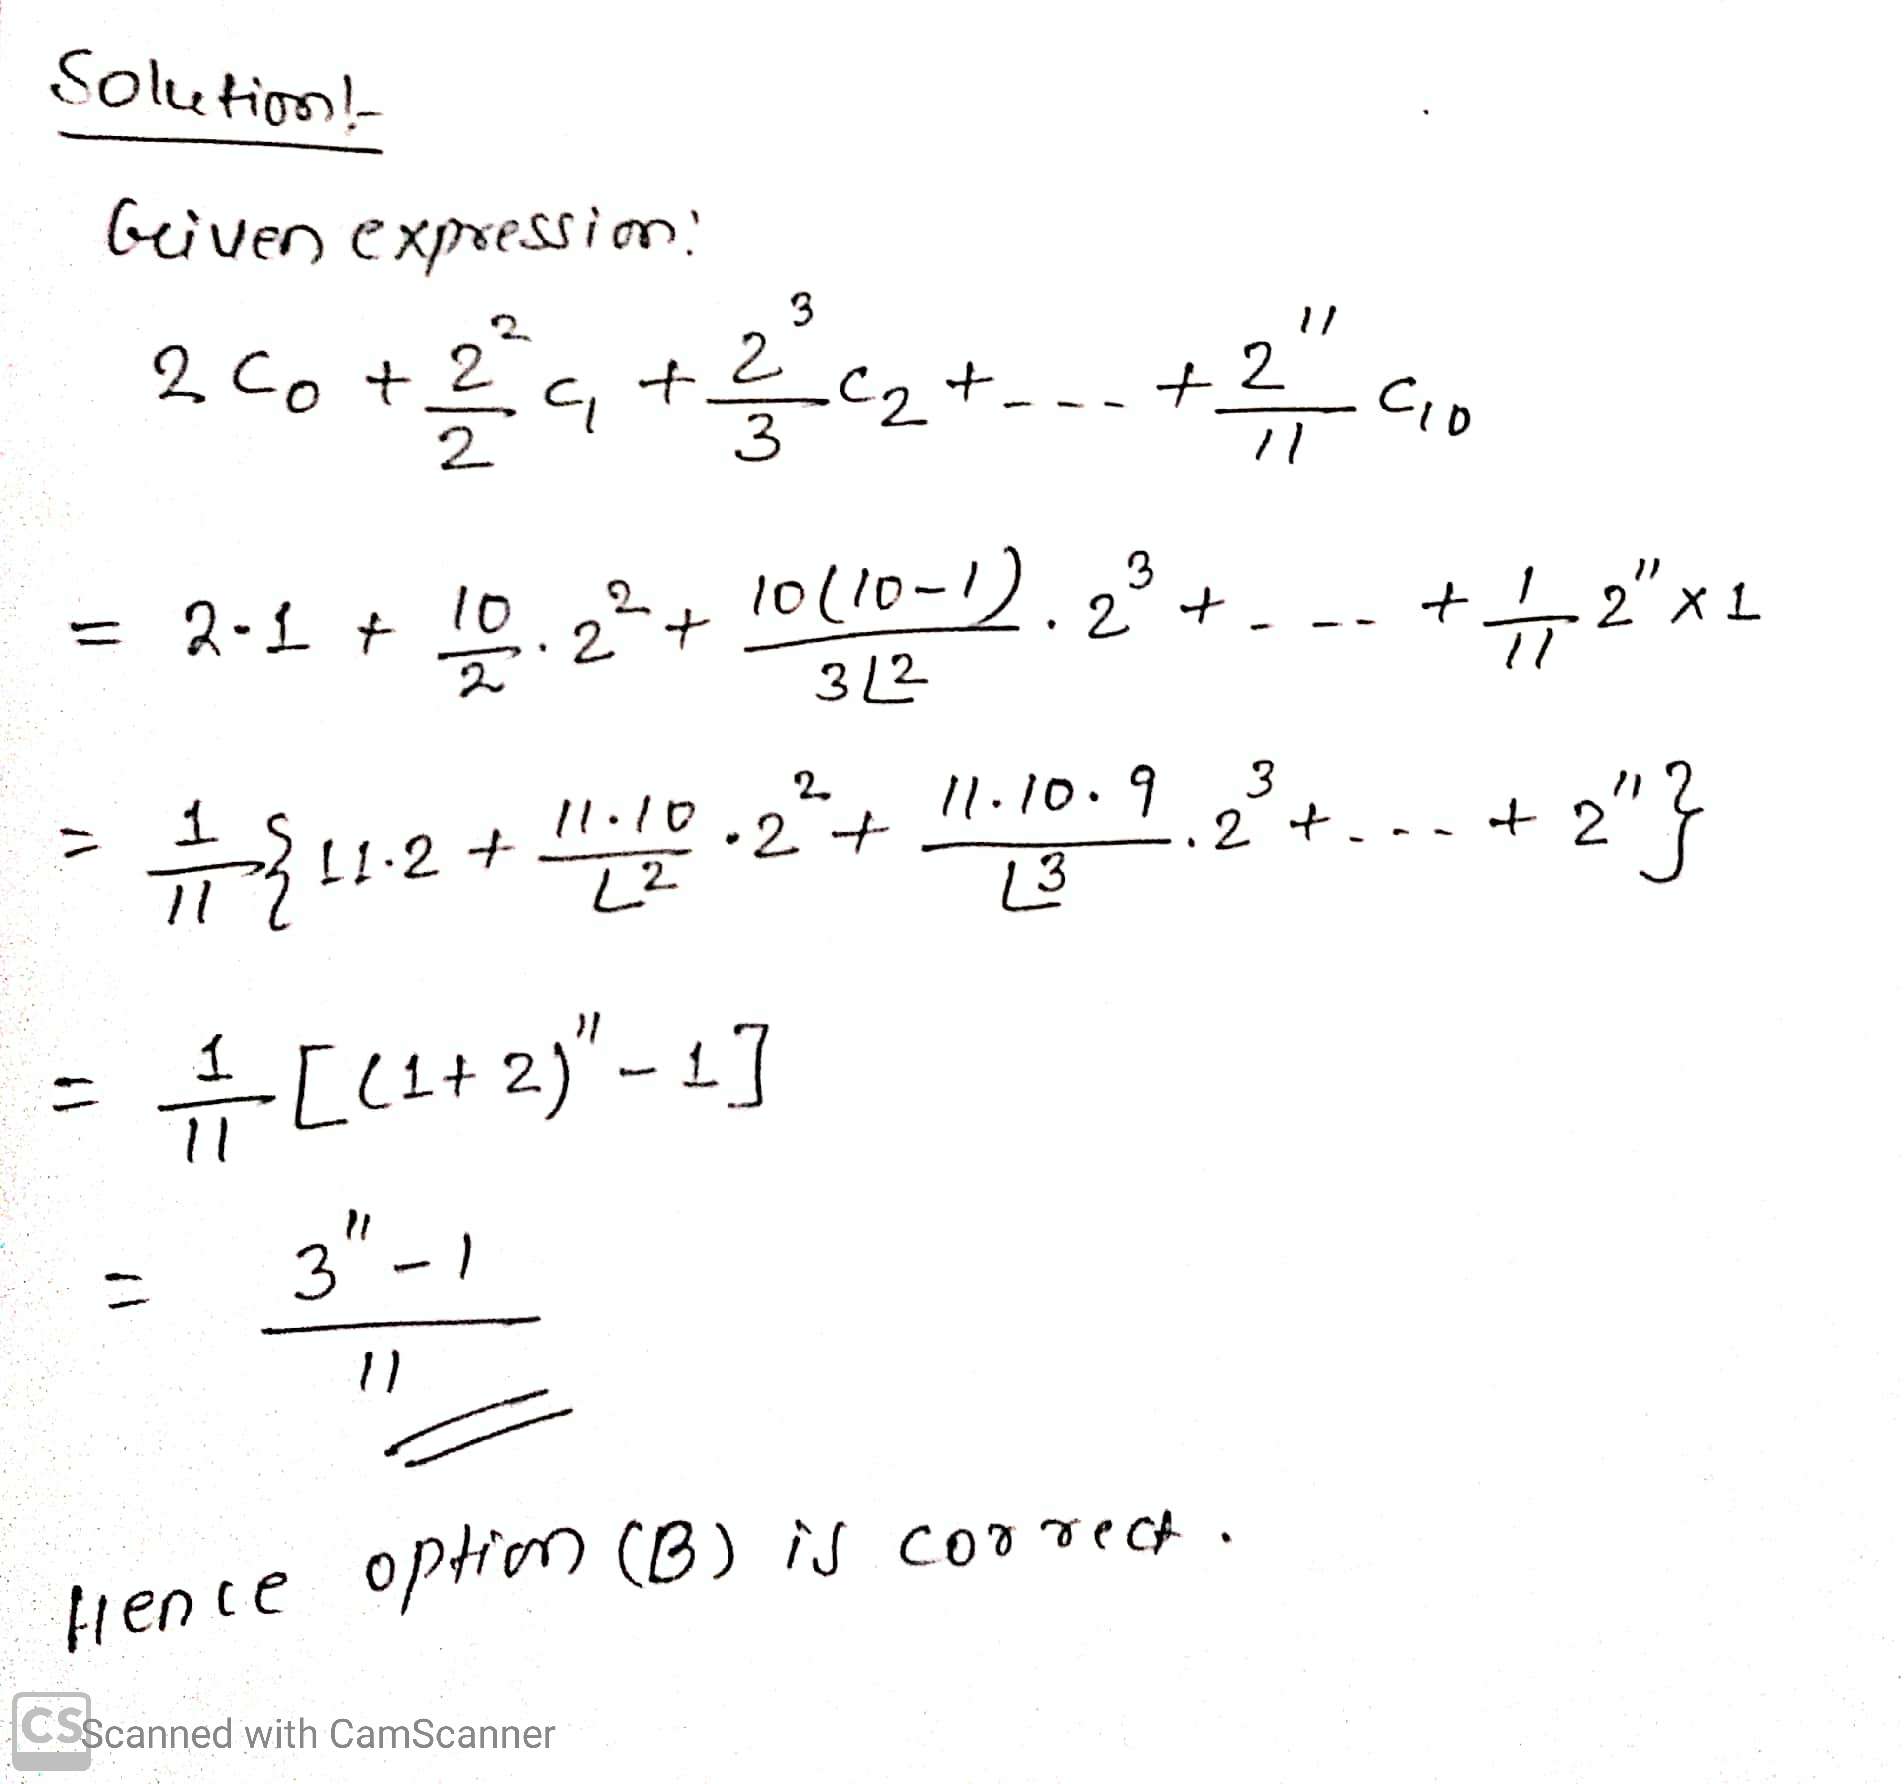 Solution:-
Given expression:
2 C₀ + 2²/2 C₁ + 2³/3 C₂ + ---- + 2¹¹/11 C₁₀
= 2·1 + 10/2 · 2² + 10(10-1)/3⌊2 · 2³ + ---- + 1/11 2¹¹ × 1
= 1/11 {11·2 + 11·10/⌊2 · 2² + 11·10·9/⌊3 · 2³ + ---- + 2¹¹}
= 1/11 [(1+2)¹¹ - 1]
= 3¹¹ - 1 / 11
Hence option (B) is correct.
CS Scanned with CamScanner